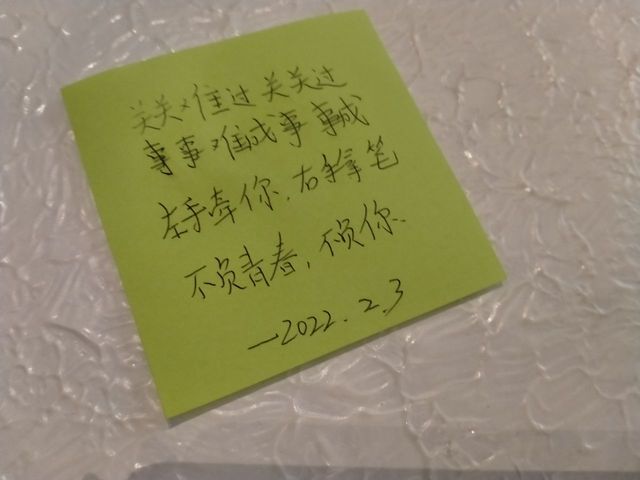 关关难过关关过
事事难成事事成
左手牵你，右手拿笔
不负青春，不负你.
—2022.2.3